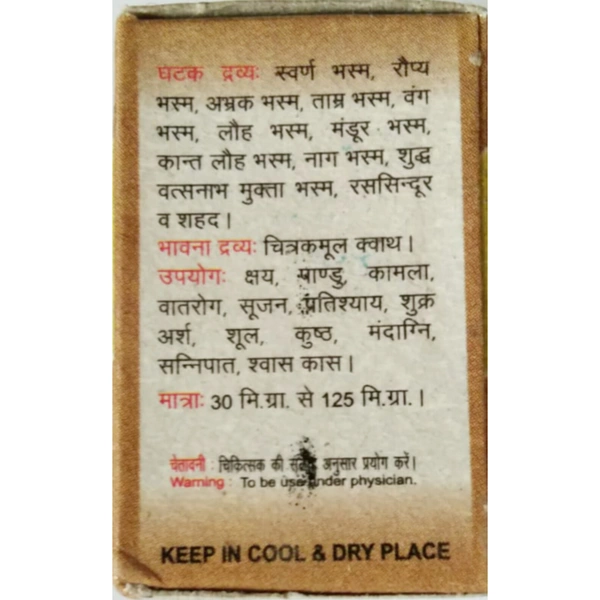 घटक द्रव्यः स्वर्ण भस्म, रौप्य
भस्म, अभ्रक भस्म, ताम्र भस्म, वंग
भस्म, लौह भस्म, मंडूर भस्म,
कान्त लौह भस्म, नाग भस्म, शुद्ध
वत्सनाभ मुक्ता भस्म, रससिन्दूर
व शहद।
भावना द्रव्यः चित्रकमूल क्वाथ।
उपयोगः क्षय, पाण्डु, कामला,
वातरोग, सूजन, प्रतिश्याय, शुक्र
अर्श, शूल, कुष्ठ, मंदाग्नि,
सन्निपात, श्वास कास।
मात्राः 30 मि.ग्रा. से 125 मि.ग्रा.।
चेतावनी : चिकित्सक की अनुसार प्रयोग करें।
Warning : To be under physician.
KEEP IN COOL & DRY PLACE